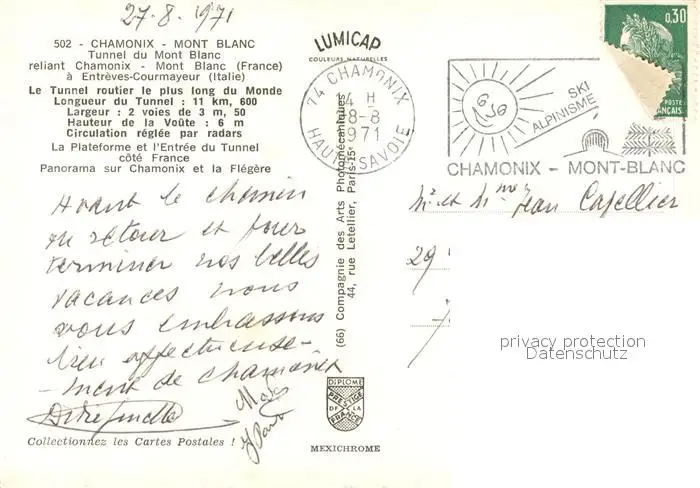 27-8-1971
502 - CHAMONIX - MONT BLANC
Tunnel du Mont Blanc
reliant Chamonix - Mont Blanc (France)
à Entrèves-Courmayeur (Italie)
Le Tunnel routier le plus long du Monde
Longueur du Tunnel : 11 km, 600
Largeur : 2 voies de 3 m, 50
Hauteur de la Voûte : 6 m
Circulation réglée par radars
La Plateforme et l'Entrée du Tunnel
côté France
Panorama sur Chamonix et la Flégère
Avant le chemin
du retour et pour
terminer nos belles
vacances nous
vous embrassons
bien affectueuse-
-ment de chamonix
Collectionnez les Cartes Postales !
LUMICAP
COULEURS NATURELLES
(66) Compagnie des Arts Photomécaniques
44, rue Letellier, Paris-15e
DIPLOME
PRESTIGE
DE LA
FRANCE
MEXICHROME
74 CHAMONIX
14 H
28-8
1971
HAUTE SAVOIE
SKI
ALPINISME
CHAMONIX - MONT-BLANC
0,30
POSTES
FRANÇAIS
Mr et Mme Jean Capellier
29
privacy protection
Datenschutz